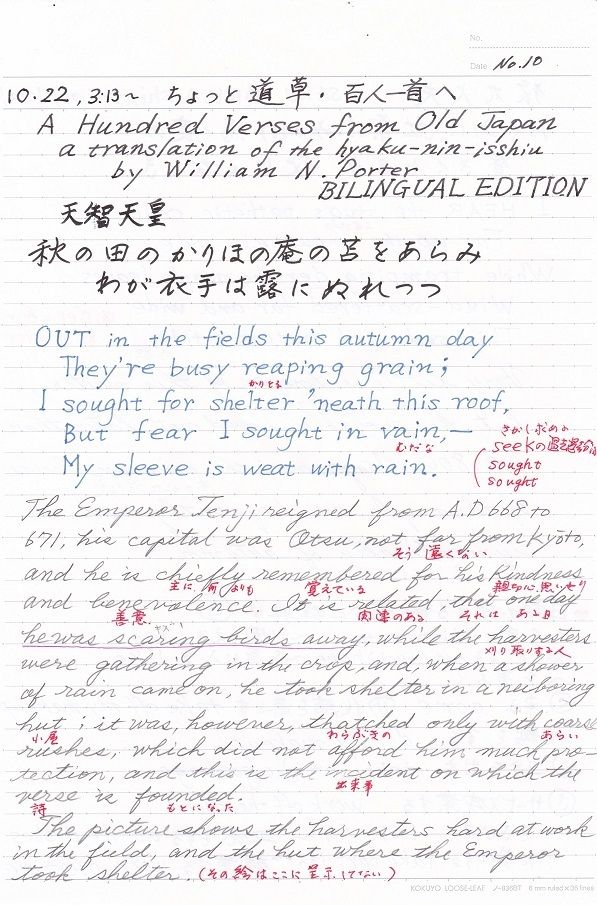 No.
Date No.10
10.22, 3:13〜 ちょっと道草・百人一首へ
A Hundred Verses from Old Japan
a translation of the hyaku-nin-isshiu
by William N. Porter
BILINGUAL EDITION
天智天皇
秋の田のかりほの庵の苫をあらみ
わが衣手は露にぬれつつ
OUT in the fields this autumn day
They're busy reaping grain;
かりとる
I sought for shelter 'neath this roof,
さがし求める
But fear I sought in vain,—
むだな
seekの過去・過去分詞
sought
sought
My sleeve is weat with rain.
The Emperor Tenji reigned from A.D 668 to
671, his capital was Otsu, not far from Kyōto,
そう遠くない
and he is chiefly remembered for his kindness
主に、何よりも 覚えている 親切心、思いやり
and benevolence. It is related, that one day
善意 関連のある それは ある日
ヤズ
he was scaring birds away, while the harvesters
刈り取りする人
were gathering in the crop, and, when a shower
of rain came on, he took shelter in a neiboring
hut; it was, however, thatched only with coarse
小屋 わらぶきの あらい
rushes, which did not afford him much pro-
tection, and this is the incident on which the
出来事
verse is founded.
詩 もとになった
The picture shows the harvesters hard at work
in the field, and the hut where the Emperor
took shelter. (その絵はここに呈示してない)
KOKUYO LOOSE-LEAF ノ-836BT 6 mm ruled×36 lines